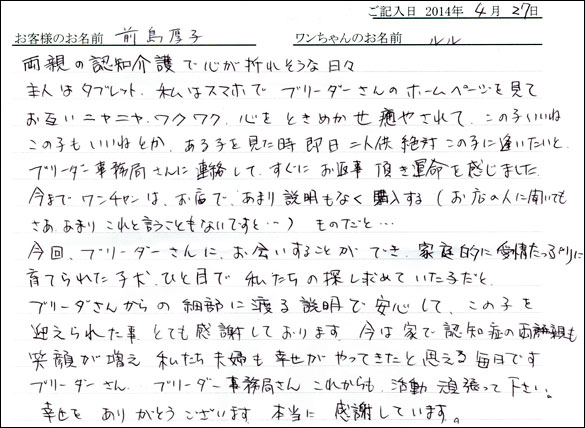 ご記入日 2014年 4月 27日
お客様のお名前 前島厚子 ワンちゃんのお名前 ルル
両親の認知介護で心が折れそうな日々
主人はタブレット、私はスマホで ブリーダーさんのホームページを見て
お互いニヤニヤ、ワクワク、心をときめかせ癒やされて、この子いいね
この子もいいねとか、ある子を見た時 即日 二人供 絶対この子に逢いたいと、
ブリーダー事務局さんに連絡して、すぐにお返事 頂き運命を感じました
今までワンチャンは、お店で、あまり説明もなく購入する（お店の人に聞いても
さあ、あまりこれと言うこともないですと…）ものだと…
今回、ブリーダーさんに、お会いすることができ、家庭的に愛情たっぷりに
育てられた子犬、ひと目で私たちの探し求めていた子だと、
ブリーダさんからの細部に渡る説明で安心して、この子を
迎えられた事、とても感謝しております。今は家で認知症の両親も
笑顔が増え 私たち夫婦も幸せがやってきたと思える毎日です
ブリーダーさん、ブリーダー事務局さん これからも、活動頑張って下さい。
幸せを ありがとうございます 本当に 感謝しています。